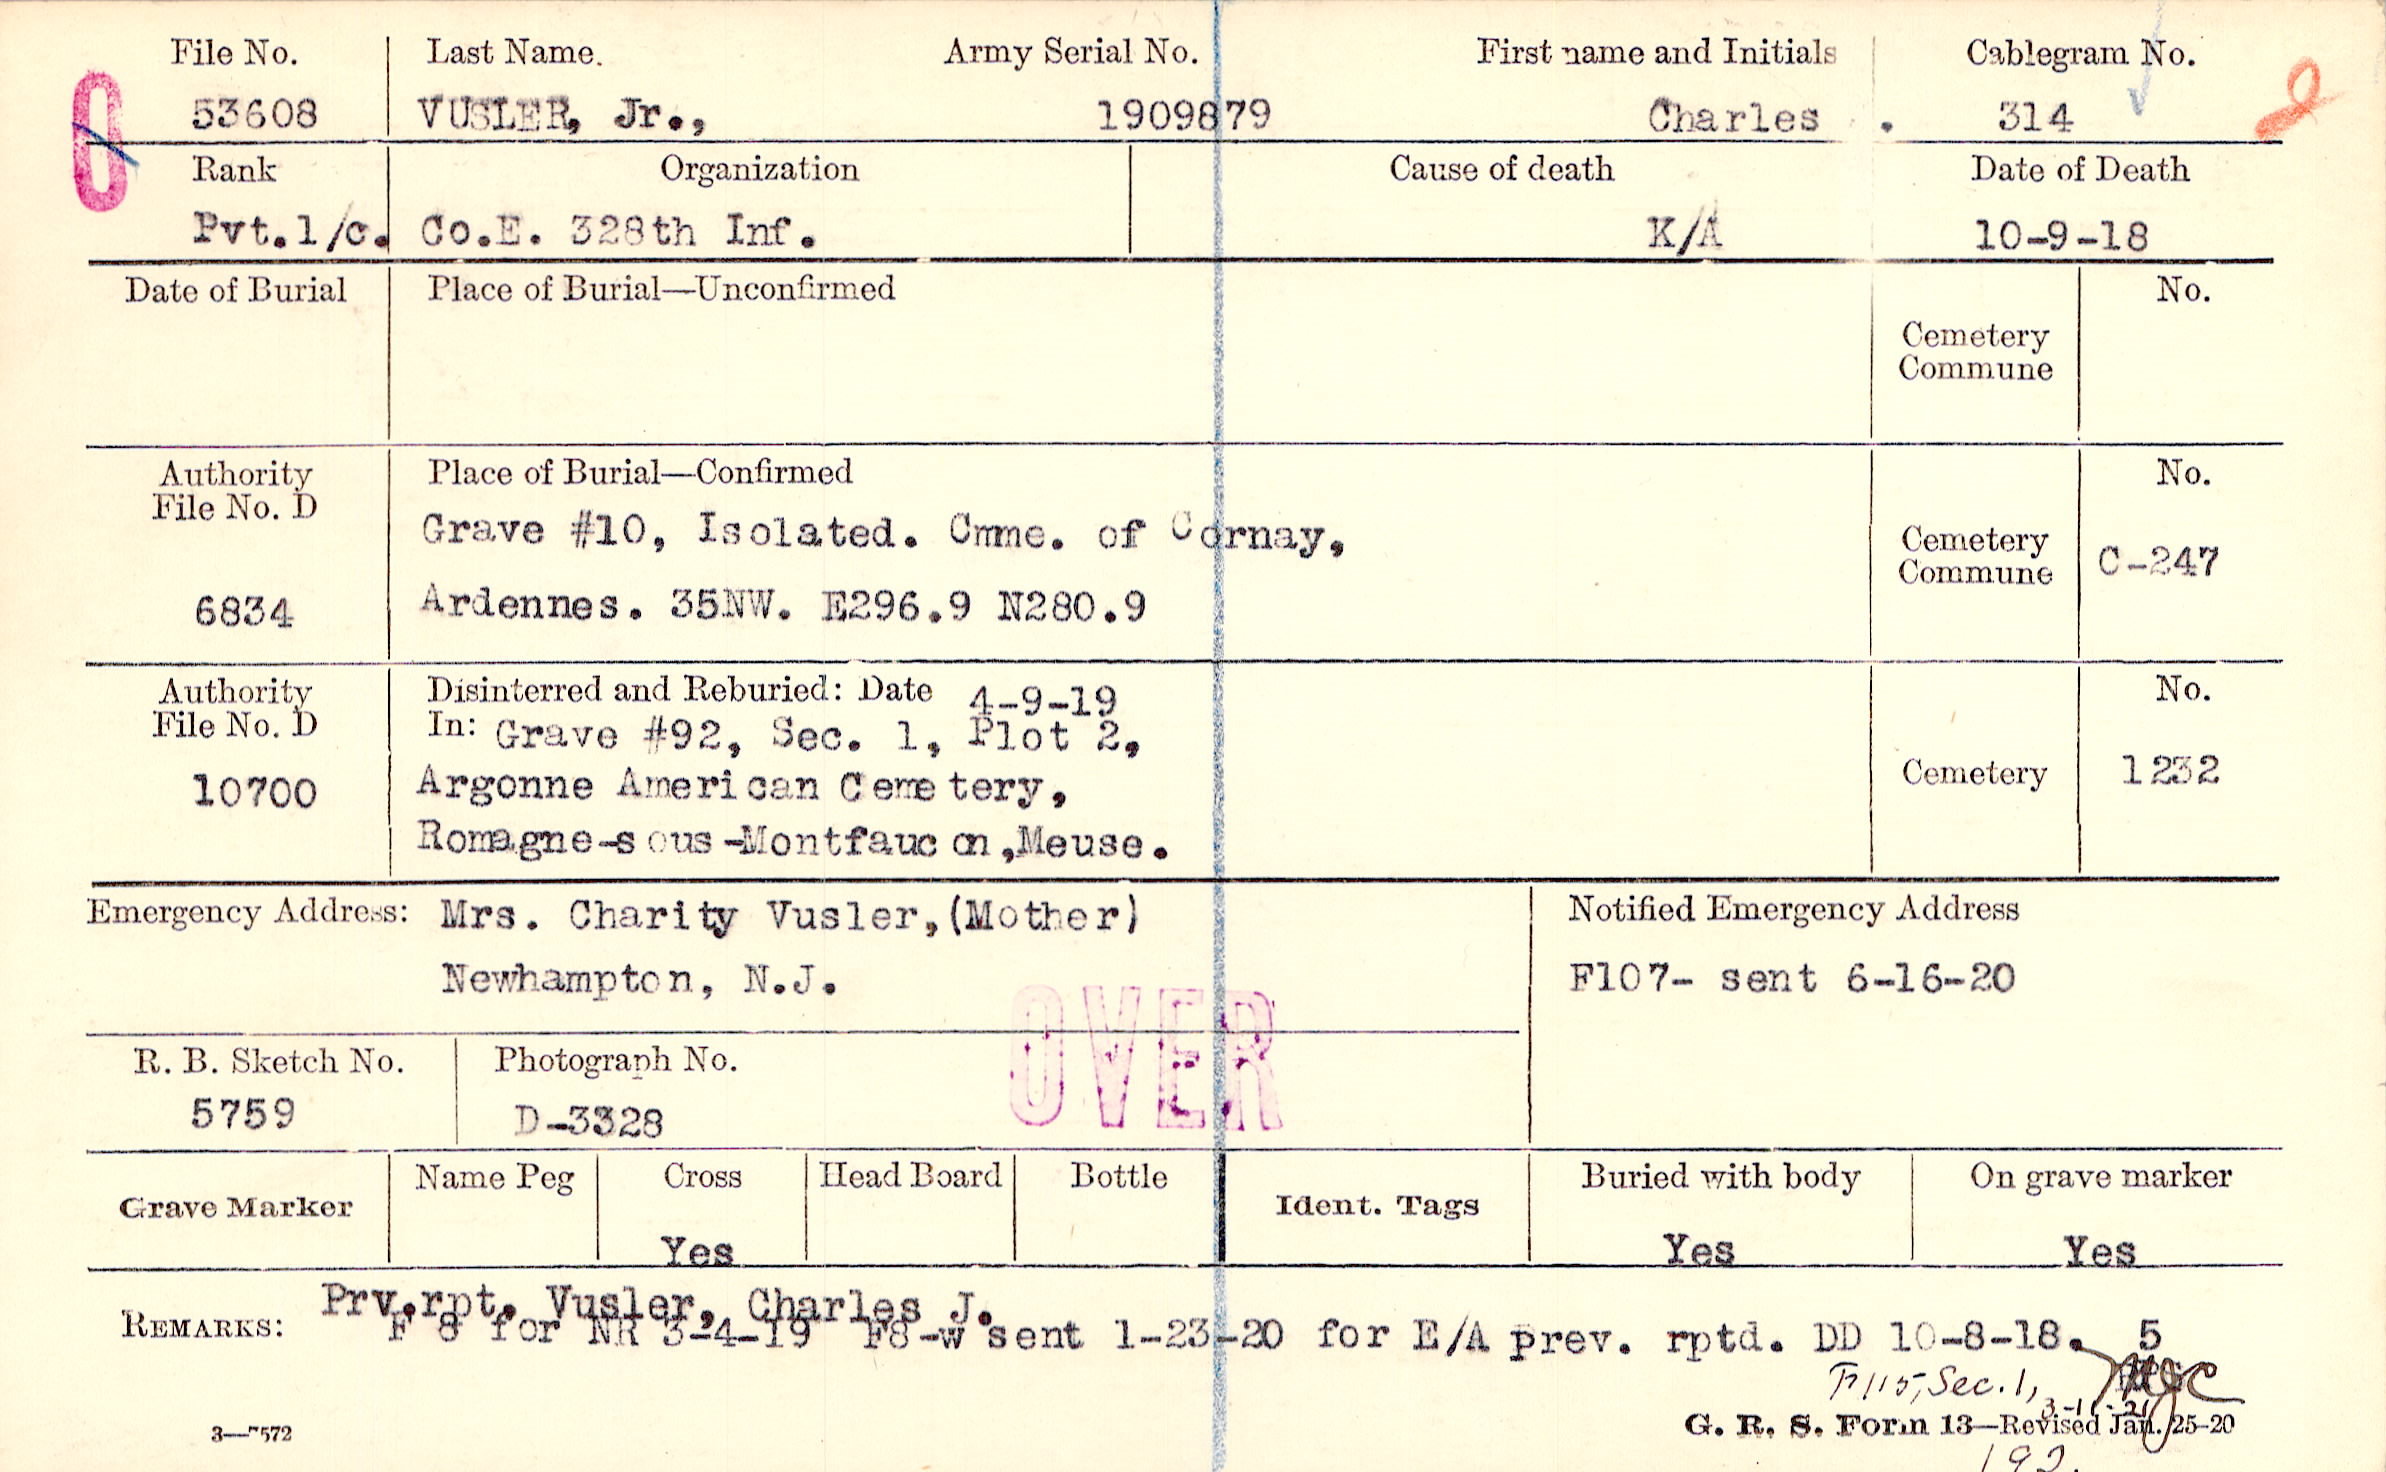 File No. Last Name. Army Serial No. First name and Initials Cablegram No.
53608 VUSLER, Jr., 1909879 Charles . 314
Rank Organization Cause of death Date of Death
Pvt.1/c. Co.E. 328th Inf. K/A 10-9-18
Date of Burial Place of Burial—Unconfirmed No.
Cemetery
Commune
Authority Place of Burial—Confirmed No.
File No. D
Grave #10, Isolated. Cmme. of Cornay,
Cemetery
Commune C-247
6834 Ardennes. 35NW. E296.9 N280.9
Authority Disinterred and Reburied: Date 4-9-19 No.
File No. D In: Grave #92, Sec. 1, Plot 2,
10700 Argonne American Cemetery, Cemetery 1232
Romagne-sous-Montfaucon,Meuse.
Emergency Address: Mrs. Charity Vusler,(Mother) Notified Emergency Address
Newhampton, N.J. F107- sent 6-16-20
OVER
R. B. Sketch No. Photograph No.
5759 D-3328
Grave Marker Name Peg Cross Head Board Bottle Ident. Tags Buried with body On grave marker
Yes Yes Yes
Prv.rpt. Vusler, Charles J.
REMARKS: F 8 for NR 3-4-19 F8-w sent 1-23-20 for E/A prev. rptd. DD 10-8-18. 5
F115, Sec. 1,
G. R. S. Form 13—Revised Jan. 25-20
3—7572
192